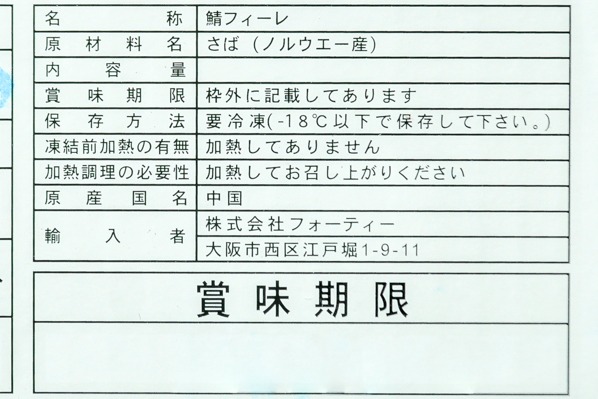 名称 鯖フィーレ
原材料名 さば（ノルウエー産）
内容量
賞味期限 枠外に記載してあります
保存方法 要冷凍(-18℃以下で保存して下さい。)
凍結前加熱の有無 加熱してありません
加熱調理の必要性 加熱してお召し上がりください
原産国名 中国
輸入者 株式会社フォーティー
大阪市西区江戸堀1-9-11
賞味期限